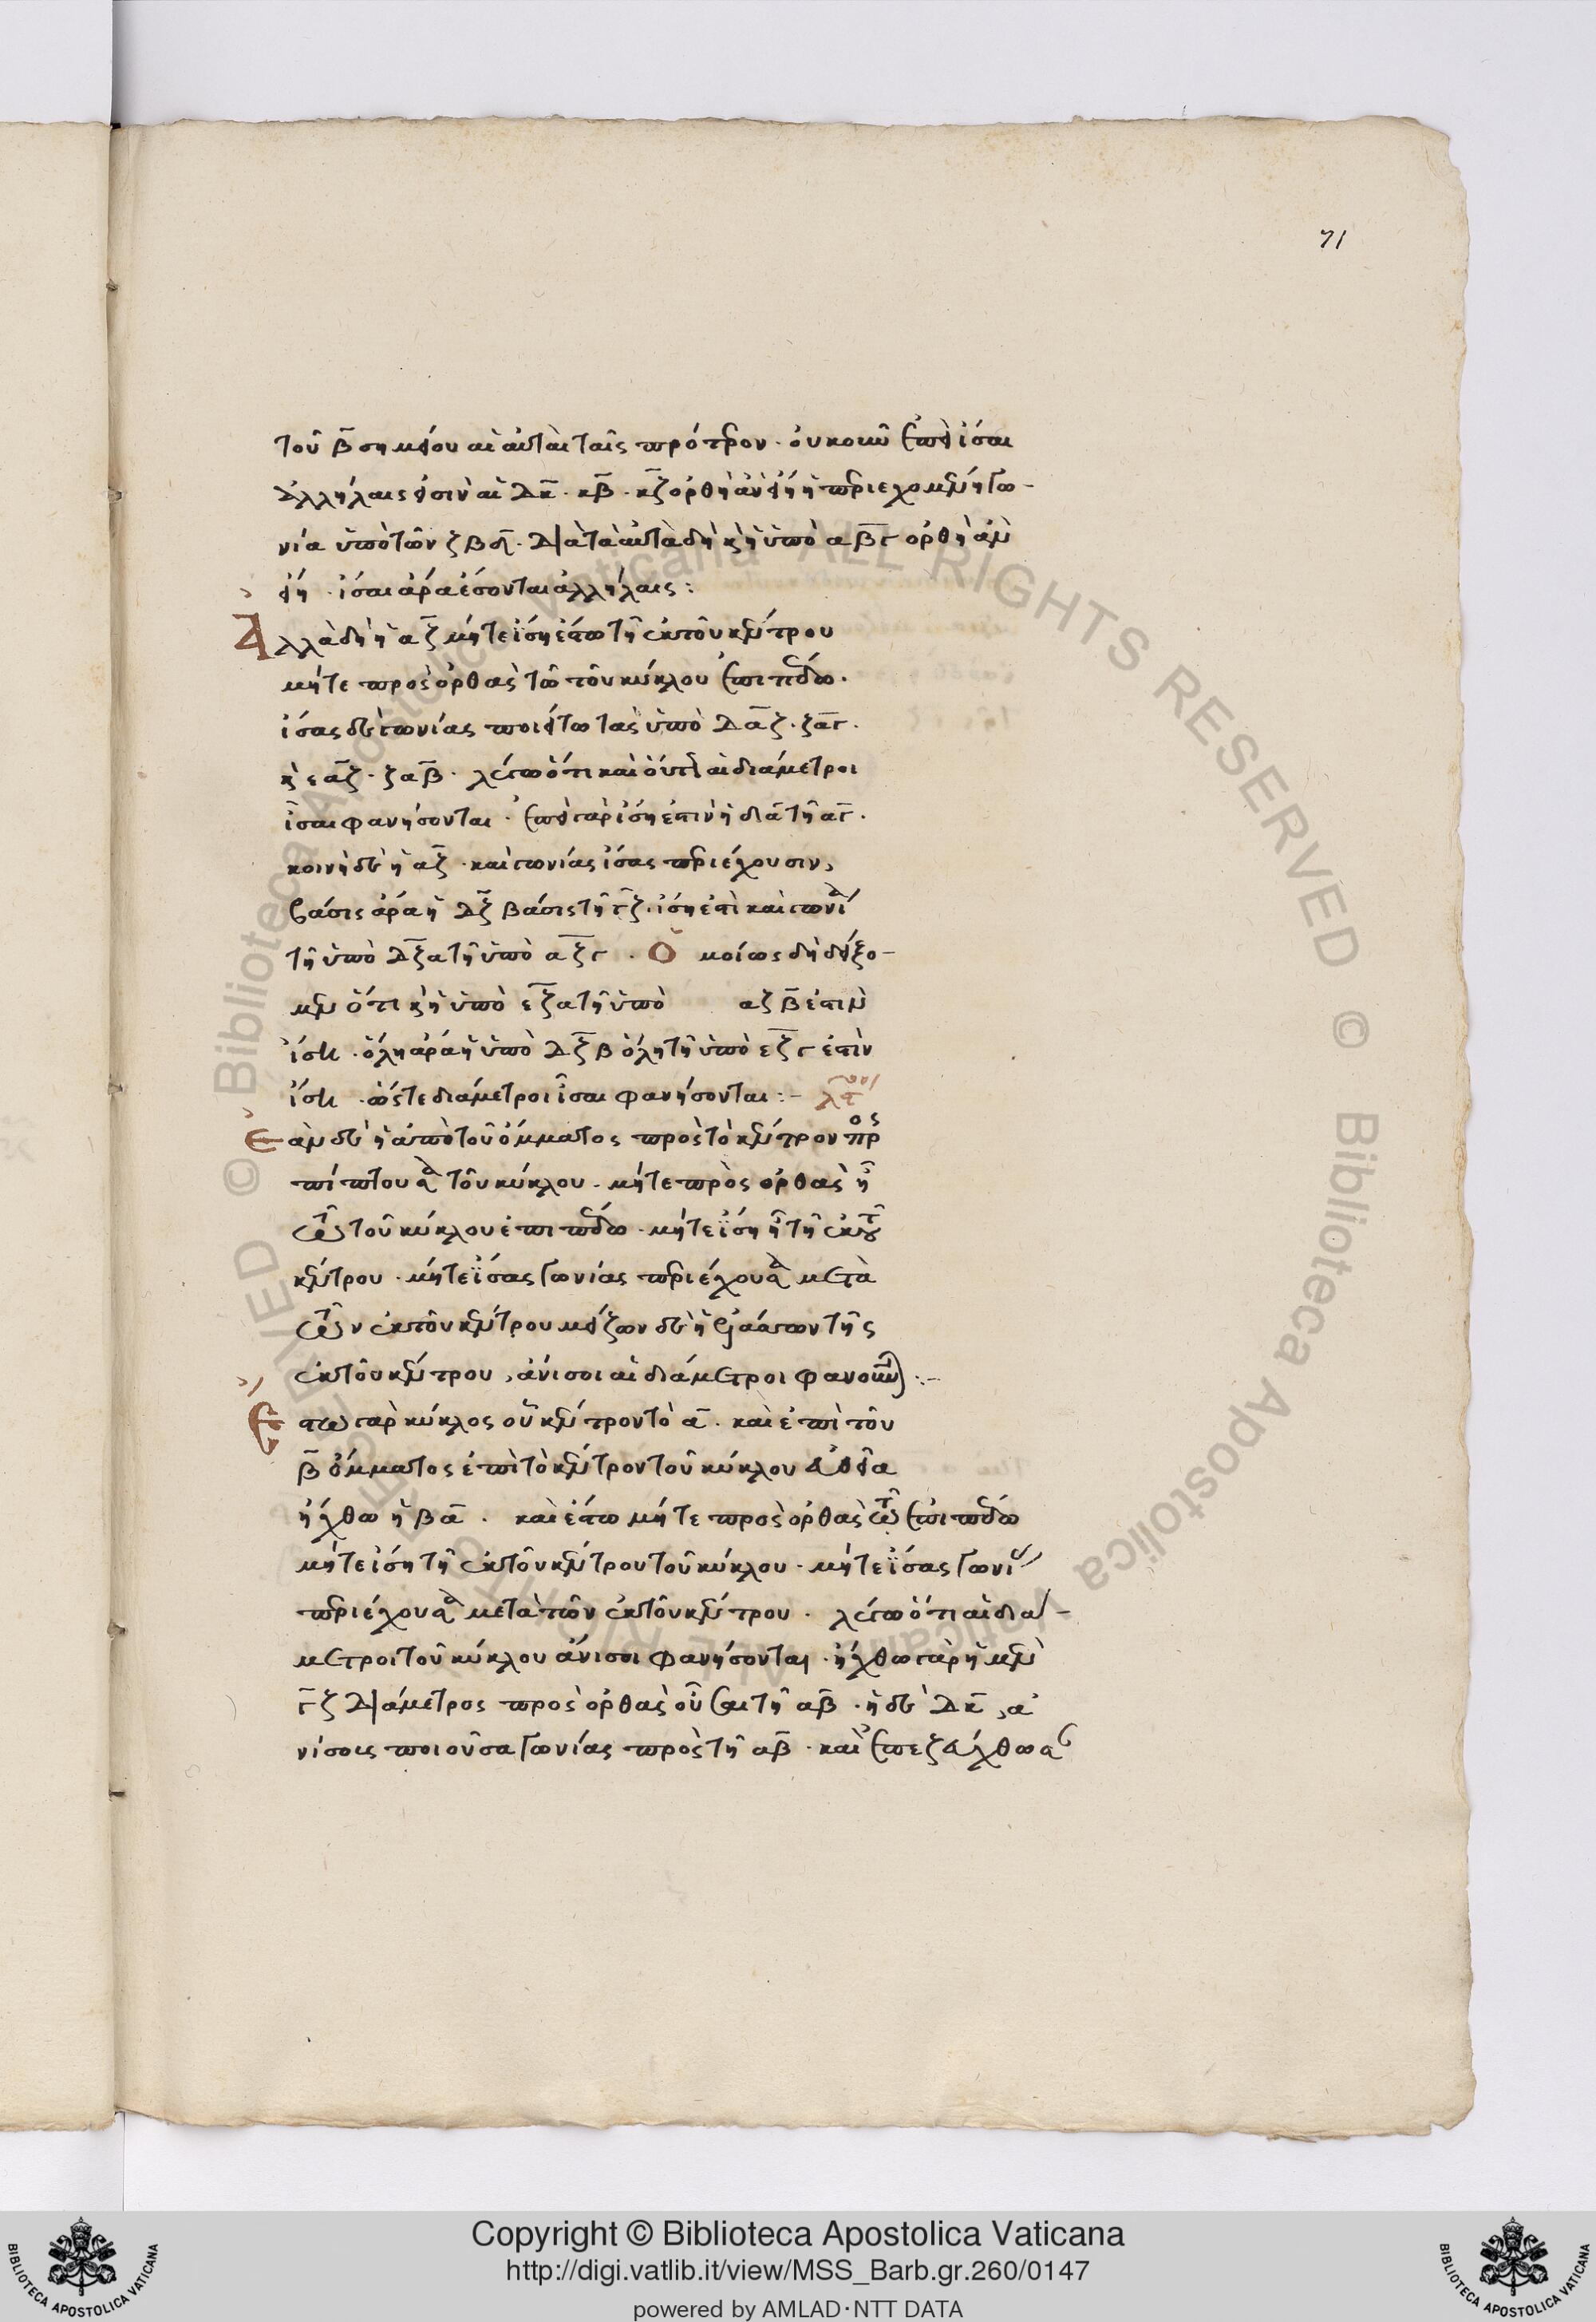 71
τοῦ β̅ σημείου αἱ αὐταὶ ταῖς πρότερον · οὐκοῦν ἐπεὶ ἴσαι
ἀλλήλαις εἰσὶν αἱ δκ̅ · κβ̅ · κζ̅ ὀρθὴ ἂν εἴη ἡ περιεχομένη γω-
νία ὑπὸ τῶν ζβδ̅ · διὰ τὰ αὐτὰ δὴ κ(αὶ) ἡ ὑπὸ αβγ̅ ὀρθὴ ἂν
εἴη · ἴσαι ἄρα ἔσονται ἀλλήλαις :
Ἀλλὰ δὴ ἡ αζ̅ μήτε ἴση ἔστω τῇ ἐκ τοῦ κέντρου
μήτε πρὸς ὀρθὰς τῷ τοῦ κύκλου ἐπιπέδῳ ·
ἴσας δὲ γωνίας ποιείτω τὰς ὑπὸ δα̅ζ · ζα̅γ ·
κ(αὶ) εα̅ζ · ζαβ̅ · λέγω ὅτι καὶ οὕτως αἱ διάμετροι
ἴσαι φανήσονται · ἐπεὶ γὰρ ἴση ἐστὶν ἡ δα̅ τῇ αγ̅ ·
κοινὴ δὲ ἡ αζ̅ · καὶ γωνίας ἴσας περιέχουσιν,
βάσις ἄρα ἡ δζ̅ βάσις τῇ γ̅ζ · ἴση ἐστὶ καὶ γωνία
τῇ ὑπὸ δζ̅α τῇ ὑπὸ αζ̅γ · Ὁμοίως δὴ δείξο-
μεν ὅτι κ(αὶ) ἡ ὑπὸ εζ̅α τῇ ὑπὸ αζβ̅ ἐστὶν
ἴση · ὅλη ἄρα ἡ ὑπὸ δζ̅β ὅλῃ τῇ ὑπὸ εζ̅γ ἐστὶν
ἴση · ὥστε διάμετροι ἴσαι φανήσονται :-
Ἐὰν δὲ ἡ ἀπὸ τοῦ ὄμματος πρὸς τὸ κέντρον προσ
πίπτουσα τοῦ κύκλου · μήτε πρὸς ὀρθὰς ᾖ
τῷ τοῦ κύκλου ἐπιπέδῳ · μήτε ἴση ᾖ τῇ ἐκ τοῦ
κέντρου · μήτε ἴσας γωνίας περιέχουσα μετὰ
τῶν ἐκ τοῦ κέντρου μείζων δὲ ἢ ἐλάττων τῆς
ἐκ τοῦ κέντρου, ἄνισοι αἱ διάμετροι φανοῦνται :-
Ἔστω γὰρ κύκλος οὗ κέντρον τὸ α̅ · καὶ ἐπὶ τοῦ
β̅ ὄμματος ἐπὶ τὸ κέντρον τοῦ κύκλου εὐθεῖα
ἤχθω ἡ βα̅ · καὶ ἔστω μήτε πρὸς ὀρθὰς τῷ ἐπιπέδῳ
μήτε ἴση τῇ ἐκ τοῦ κέντρου τοῦ κύκλου · μήτε ἴσας γωνίας
περιέχουσα μετὰ τῶν ἐκ τοῦ κέντρου · λέγω ὅτι αἱ διά-
μετροι τοῦ κύκλου ἄνισοι φανήσονται · ἤχθω γὰρ ἡ μὲν
γ̅ζ διάμετρος πρὸς ὀρθὰς οὖσα τῇ αβ̅ · ἡ δὲ δκ̅, ἀ
νίσους ποιοῦσα γωνίας πρὸς τῇ αβ̅ · καὶ ἐπεζεύχθωσα
Copyright © Biblioteca Apostolica Vaticana
http://digi.vatlib.it/view/MSS_Barb.gr.260/0147
powered by AMLAD·NTT DATA